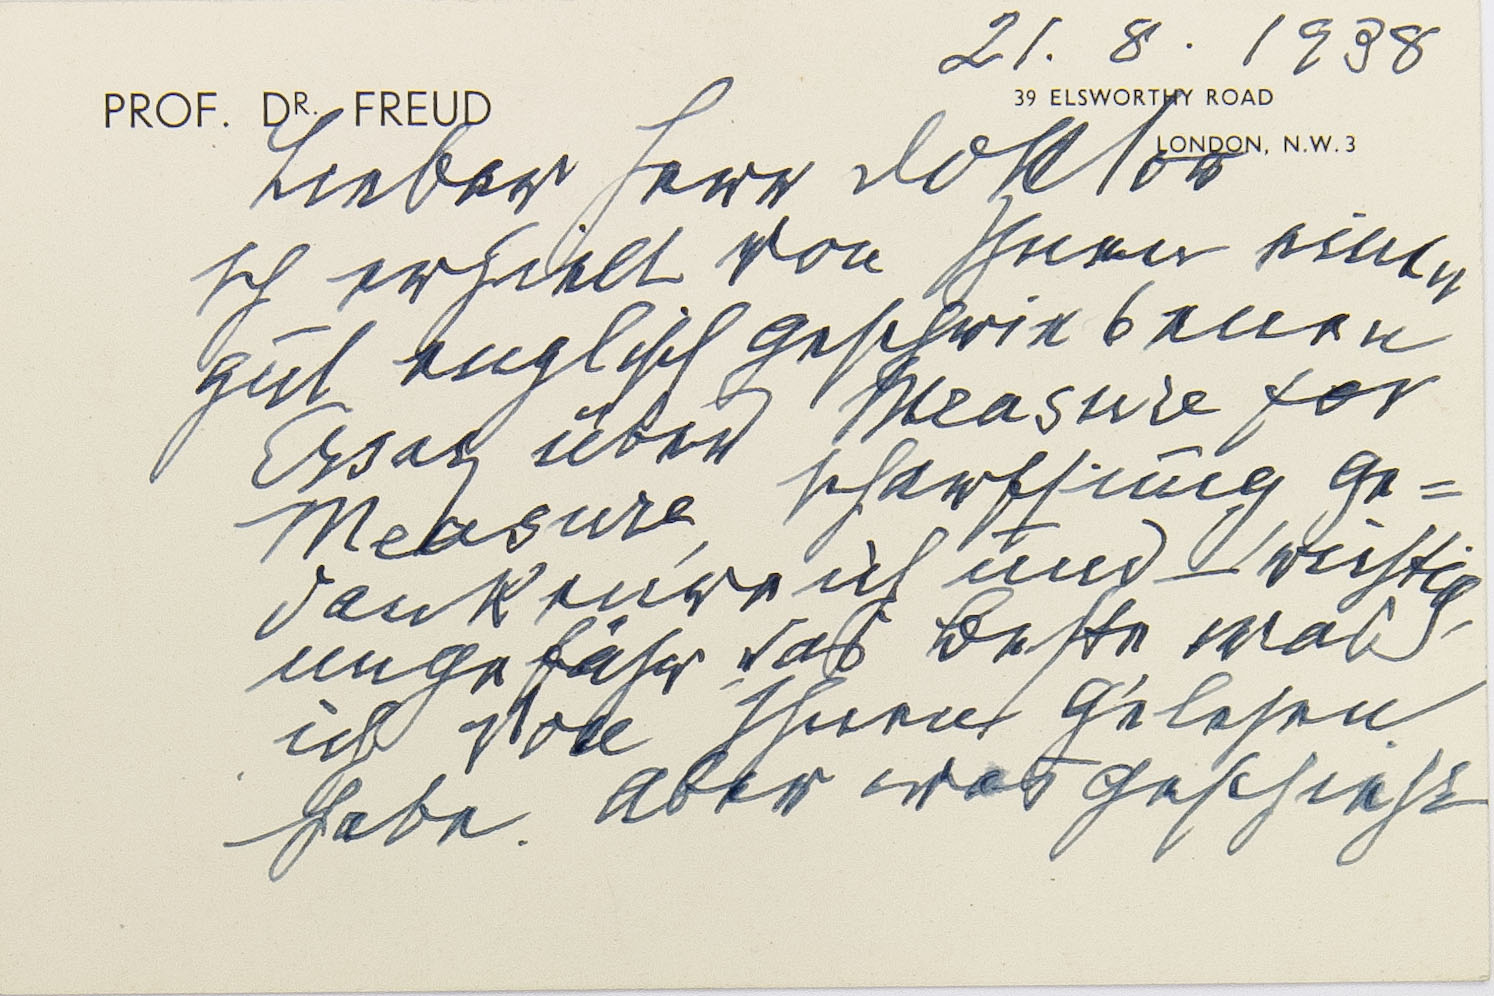 21. 8. 1938
PROF. DR. FREUD
39 ELSWORTHY ROAD
LONDON, N.W.3
Lieber Herr Doktor
Ich erhielt von Ihnen einen
gut englisch geschriebenen
Essay über Measure for
Measure, scharfsinnig ge=
dankenreich und richtig,
ungefähr das Beste was
ich von Ihnen gelesen
habe. Aber was geschieht